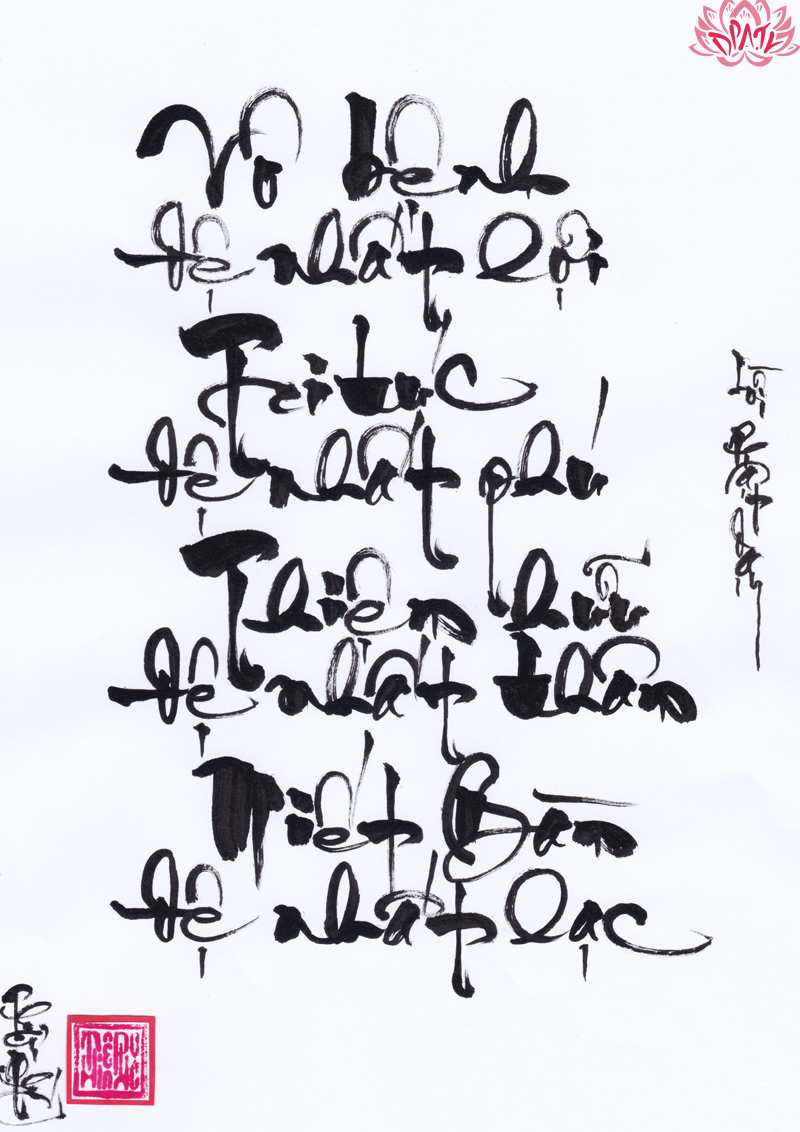 ĐPATK
Vô bệnh
đệ nhất lợi
Tri túc
đệ nhất phú
Thiện hữu
đệ nhất thân
Niết Bàn
đệ nhất lạc
Lời Phật dạy